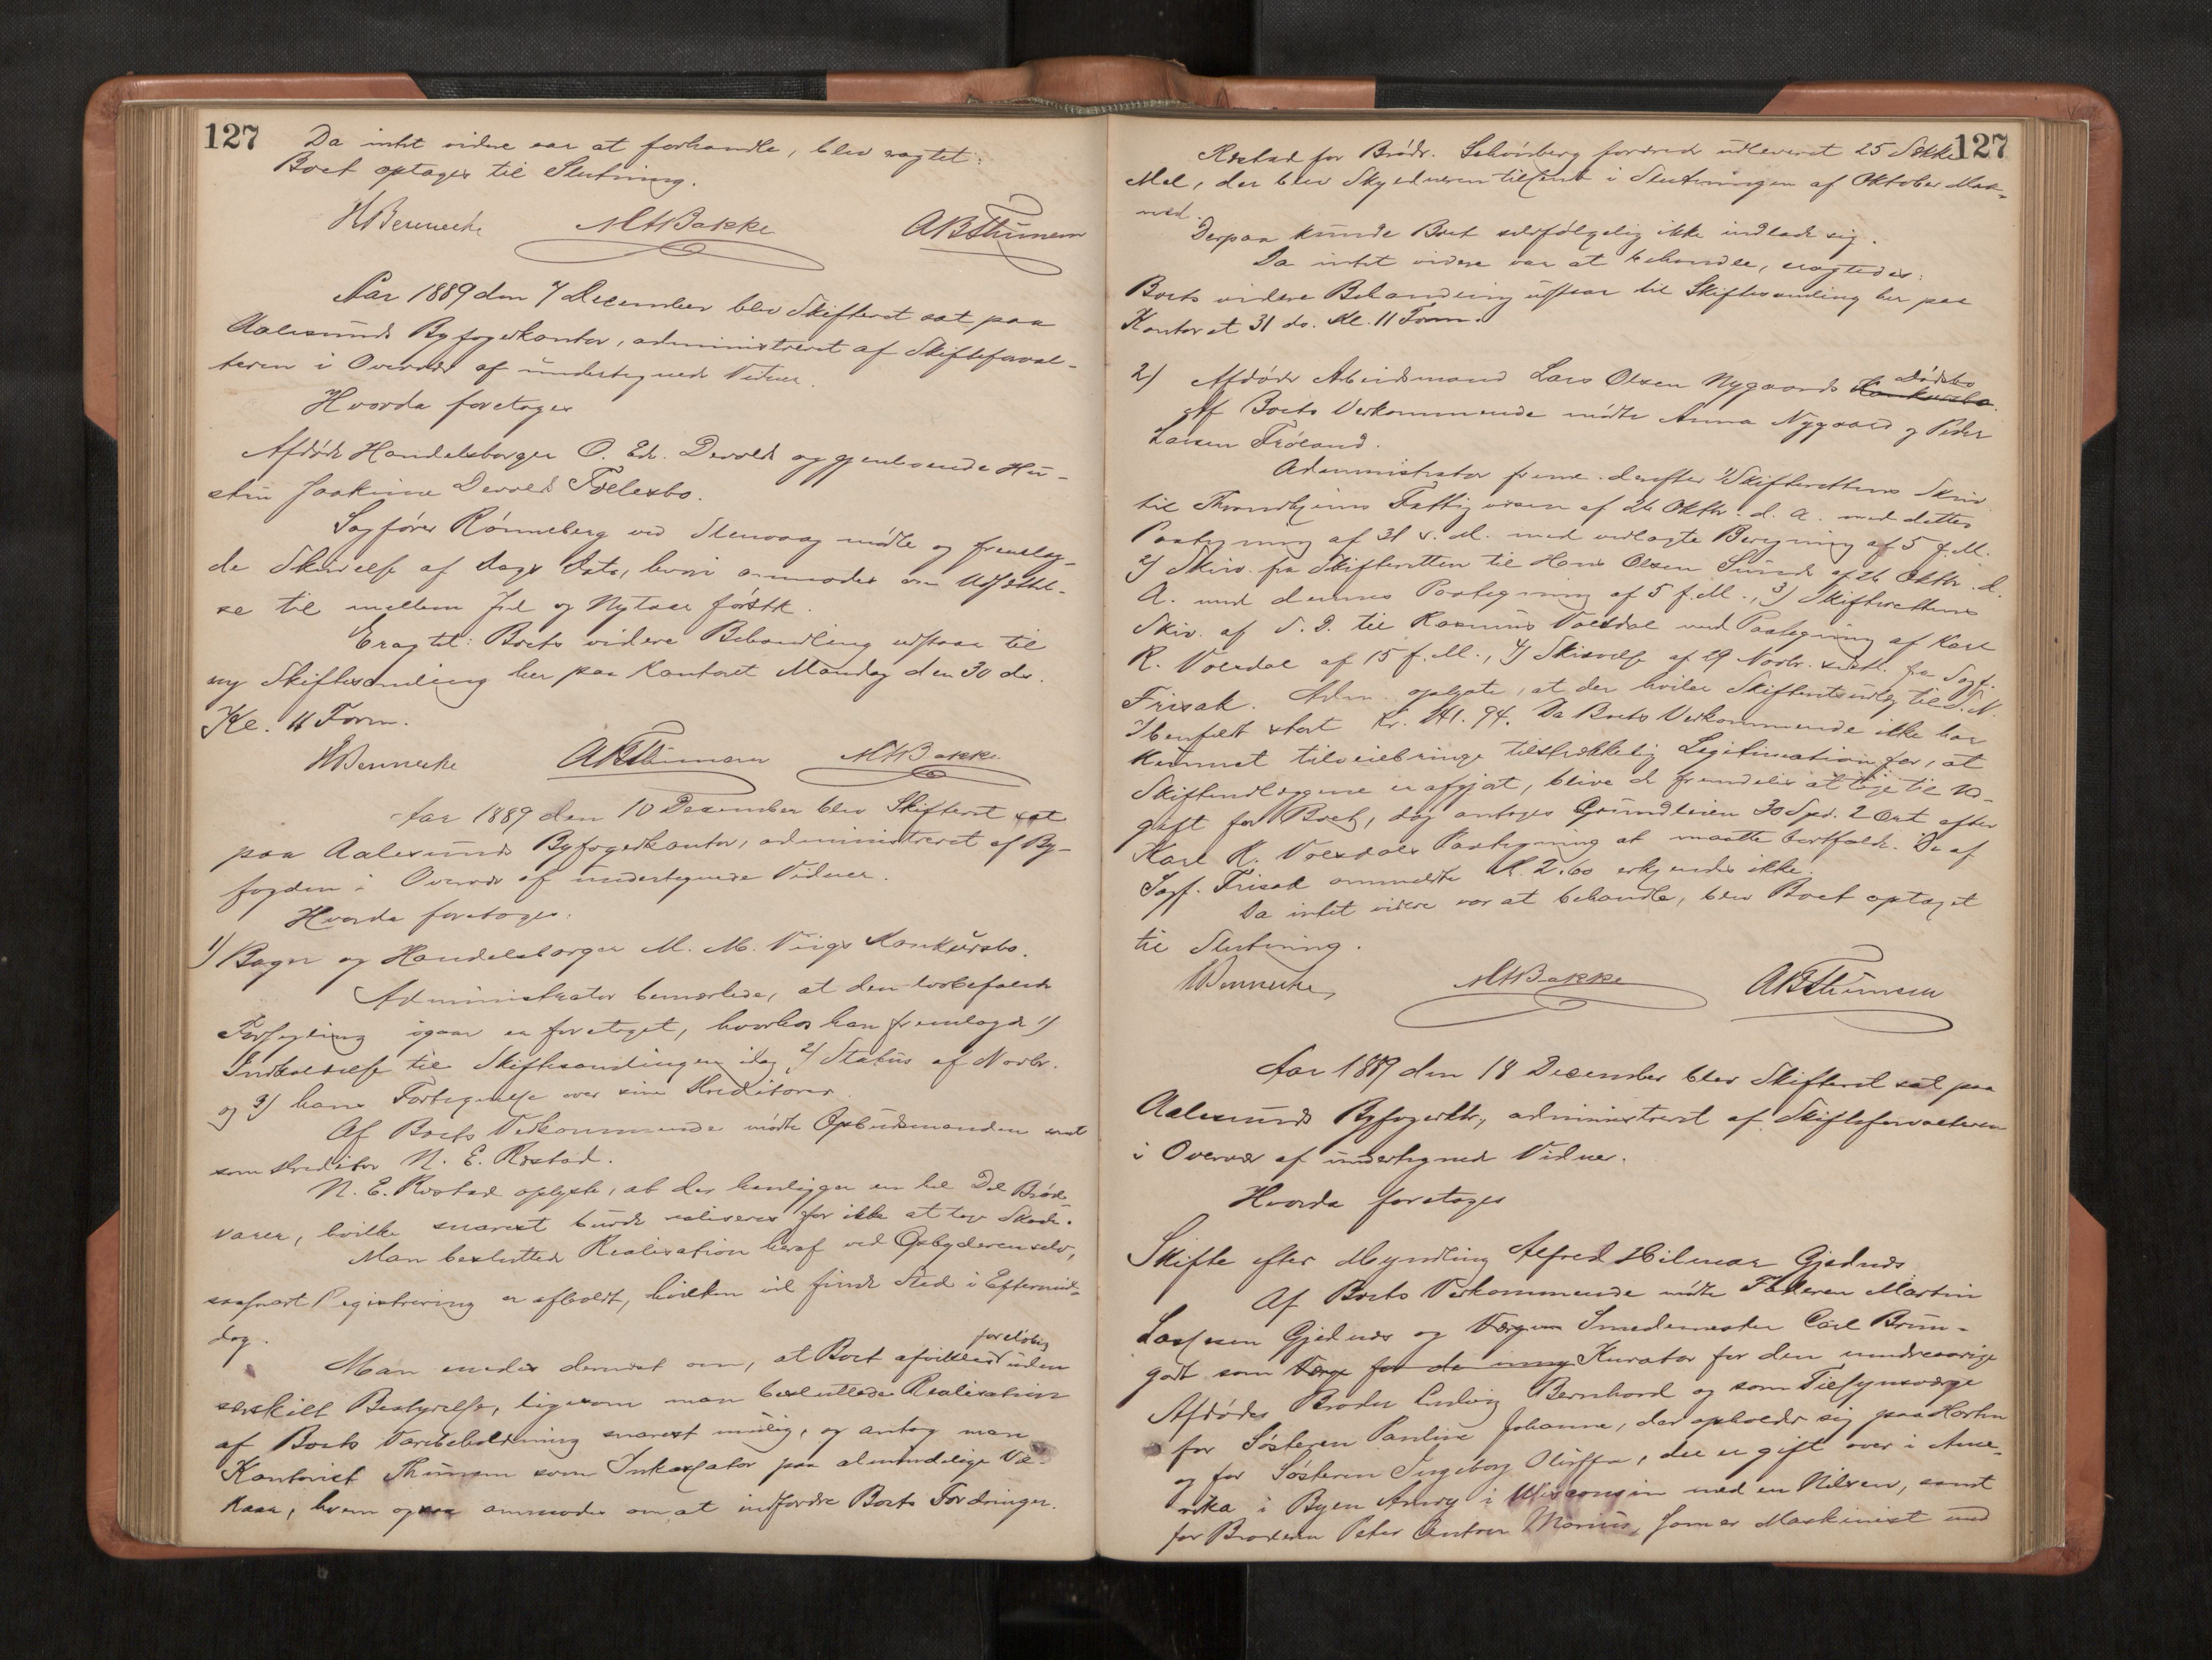 127
Da intet videre var at forhandle, blev eragtet:
Boet optages til Slutning.
HBennecke MHBakke ABThimsen
Aar 1889 den 7 December blev Skifteret sat paa
Aalesunds Byfogedkontor, administreret af Skifteforval-
teren i Overvær af undertegnede Vidner.
Hvorda foretoges
Afdøde Handelsborger O. Edv. Devold og gjenlevende Hu-
stru Joakime Devold Fællesbo.
Sagfører Rønneberg ved Stenvaag mødte og fremlag-
de Skrivelse af Dags Dato, hvori anmodes om Udsættel-
se til mellem Jul og Nytaar førstk.
Eragtet: Boets videre Behandling udstaar til
ny Skiftesamling her paa Kontoret Mandag den 30 ds.
Kl. 11 Form.
HBennecke ABThimsen MHBakke
Aar 1889 den 10 December blev Skifteret sat
paa Aalesunds Byfogedkontor, administreret af By-
fogden i Overvær af undertegnede Vidner.
Hvorda foretoges:
1) Bager og Handelsborger M. M. Viigs Konkursbo.
Administrator bemærkede, at den lovbefalede
Forsegling igaar er foretaget, hvorhos han fremlagde 1)
Indkaldelse til Skiftesamlingen idag 2) Status af Novbr.
og 3) hans Fortegnelse over sine Kreditorer.
Af Boets Vedkommende mødte Opbudsmanden samt
som Kreditor N. E. Røstad.
N. E. Røstad oplyste, at der henligger en hel Del Brød-
varer, hvilke snarest burde realiseres for ikke at tage Skade.
Man besluttede Realisation heraf ved Opbyderen selv,
saasnart Registrering er afholdt, hvilken vil finde Sted i Eftermid-
dag.
Man enedes dernæst om, at Boet afvikles foreløbig uden
særskilt Bestyrelse, ligesom man besluttede Realisation
af Boets Varebeholdning snarest mulig, og antog man
Kontorist Thimsen som Inkassator paa almindelige Vil-
kaar, hvem ogsaa anmodes om at indfordre Boets Fordringer.
127
Røstad for Brødr. Schönberg fordrede udleveret 25 Sække
Mel, der blev Skyldneren tilsendt i Slutningen af Oktober Maa-
ned.
Derpaa kunde Boet selvfølgelig ikke indlade sig.
Da intet videre var at behandle, eragtedes:
Boets videre Behandling udstaar til Skiftesamling her paa
Kontoret 31 ds. Kl. 11 Form.
2) Afdøde Arbeidsmand Lars Olsen Nygaards Konkursbo Dødsbo.
Af Boets Vedkommende mødte Anna Nygaard og Peder
Larsen Frøland.
Administrator freml. derefter 1) Skifterettens Skriv.
til Throndhjems Fattigvæsen af 26 Oktbr. d. A. med dettes
Paategning af 31 s. M. med vedlagte Beregning af 5 f. M.
2) Skriv. fra Skifteretten til Hans Olsen Sunde af 26 Oktbr. d.
A. med dennes Paategning af 5 f. M., 3) Skifterettens
Skriv. af S. D. til Rasmus Volsdal med Paategning af Karl
R. Volsdal af 15 f. M., 4) Skrivelse af 29 Novbr. sidstl. fra Sagf.
Frisak. Adm. oplyste, at der hviler Skifteudlæg til J. N.
Ibenfeldt stort Kr. 241.94. Da Boets Vedkommende ikke har
kunnet tilveiebringe tilstrækkelig Legitimation for, at
Skifteudlæggene er afgjort, blive de fremdeles at tage til Ud-
gift for Boet, dog antoges Grundleien 30 Spd. 2 Ort efter
Karl R. Volsdals Paategning at maatte bortfalde. De af
Sagf. Frisak anmeldte Kr. 2.60 erkjendes ikke.
Da intet videre var at behandle, blev Boet optaget
til Slutning.
HBennecke, MHBakke ABThimsen
Aar 1889 den 18 December blev Skifteret sat paa
Aalesunds Byfogedktr, administreret af Skifteforvalteren
i Overvær af undertegnede Vidner.
Hvorda foretoges
Skifte efter Myndling Alfred Hilmar Gjednes
Af Boets Vedkommende mødte Faderen Martin
Lassesen Gjednes og Værgen Smedemester Carl Brun-
godt som Værge for de umy Kurator for den mindreaarige
Afdødes Broder Ludvig Bernhard og som Tilsynsværge
for Søsteren Pauline Johanne, der opholder sig paa Horten
og for Søsteren Ingeborg Oluffa, der er gift over i Ame-
rika i Byen Amry i Wisconsin med en Nilsen, samt
for Broderen Peter Anton Marius, som er Maskinist med